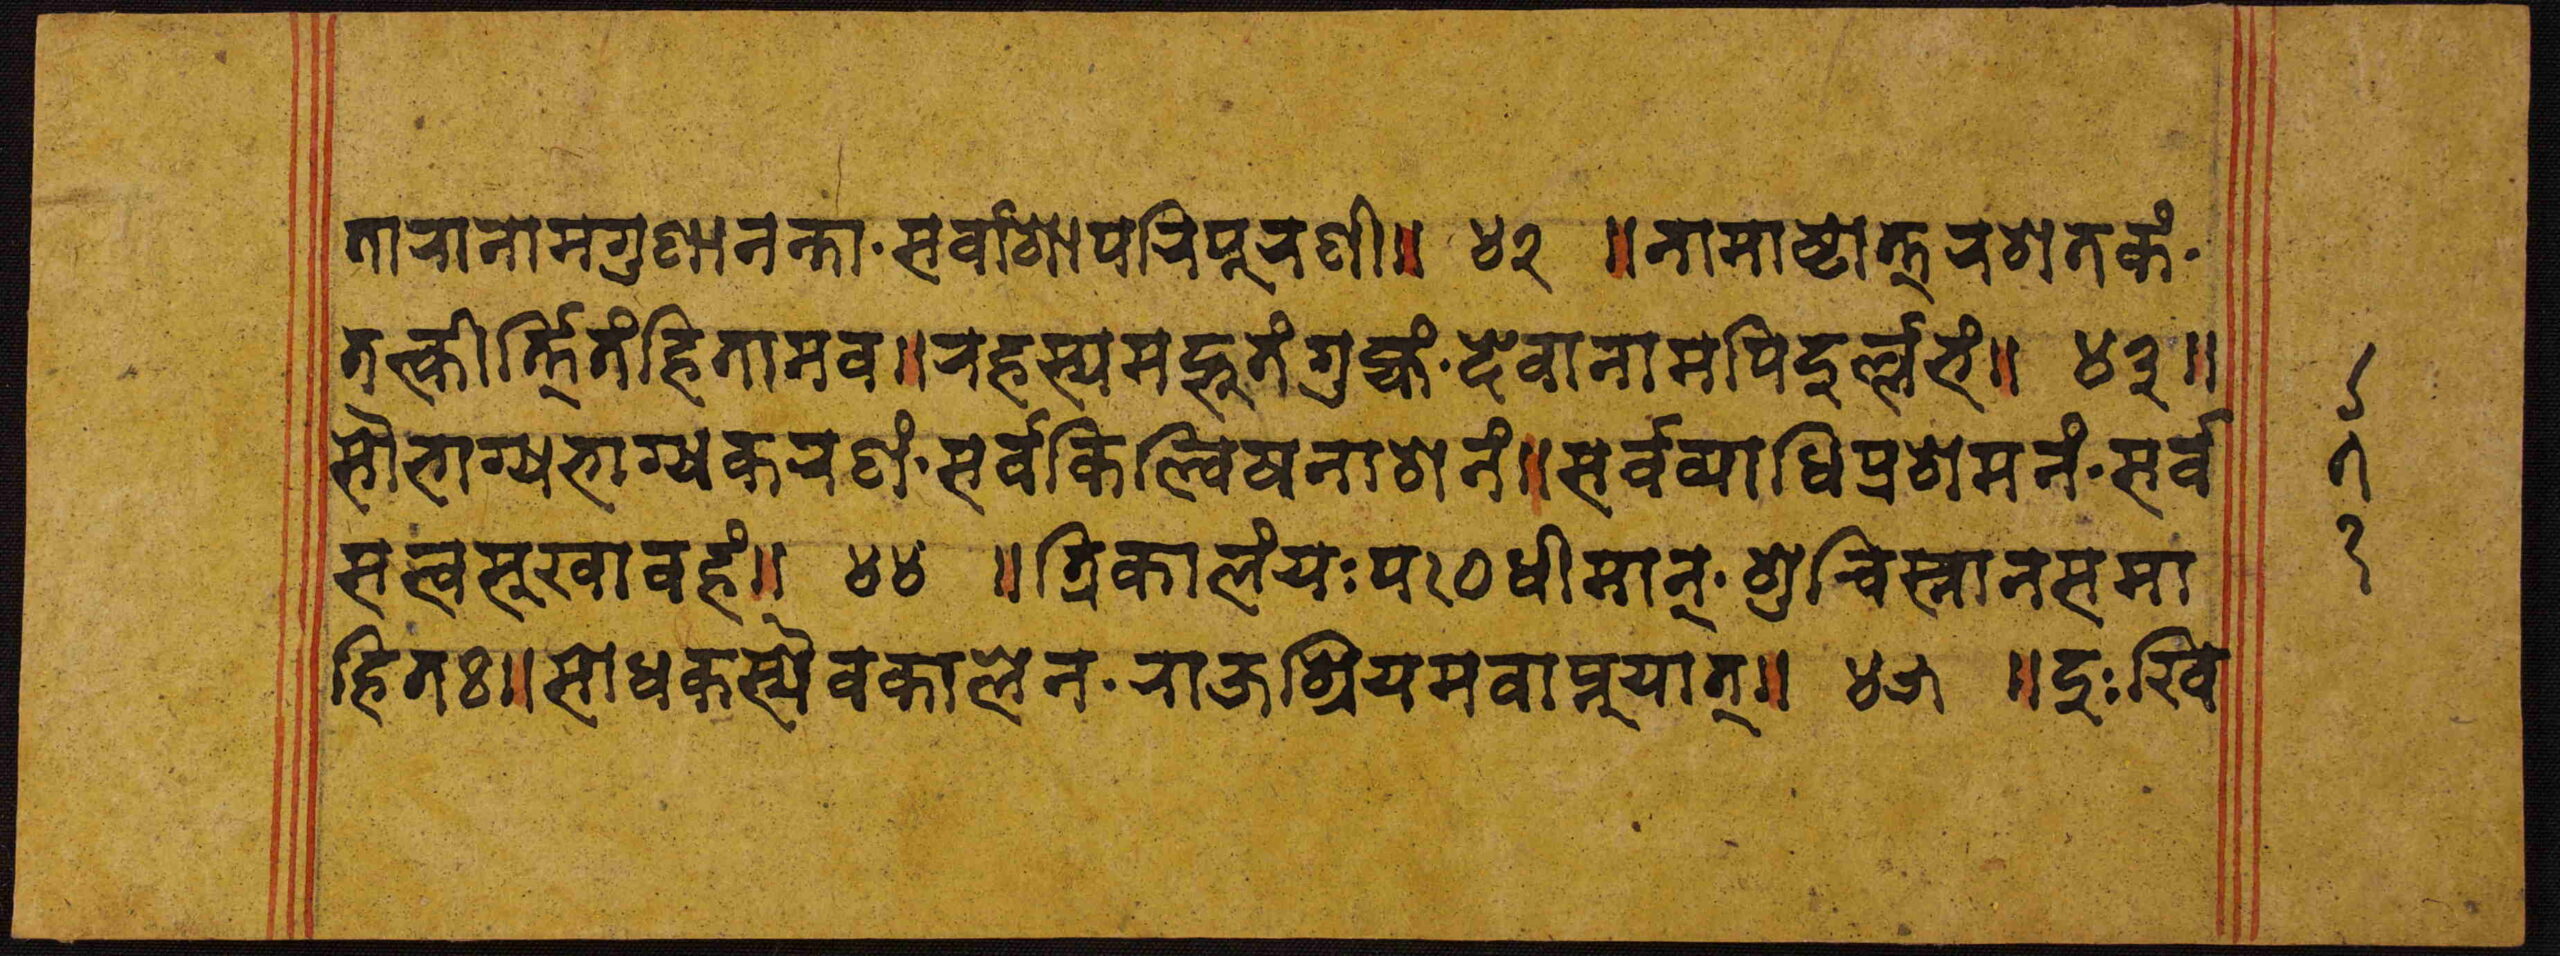 तारानामगुणानन्ता·सर्वाशापरिपूरणी॥ ४२ ॥नामाष्टात्तरशतकं·
तत्कीर्त्तितंहितामव॥रहस्यमद्भुतंगुह्यं·देवानामपिदुर्ल्लभं॥ ४३॥
सौभाग्यभाग्यकरणं·सर्वकिल्विषनाशनं॥सर्वव्याधिप्रशमनं·सर्व
सत्वसुखावहं॥ ४४ ॥त्रिकालंयःपठेधीमान्·शुचिस्नानसमा
हितः॥साधकस्यैवकालेन·राजश्रियमवाप्नुयात्॥ ४५ ॥दुःखि